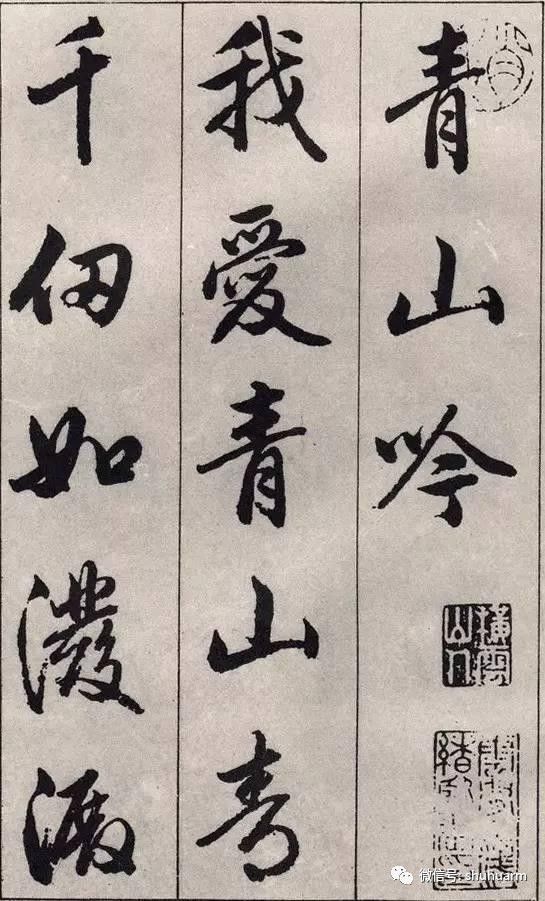 青山吟
橫雲山人
我愛青山青
千仞如潑
微信号: shuhuarm